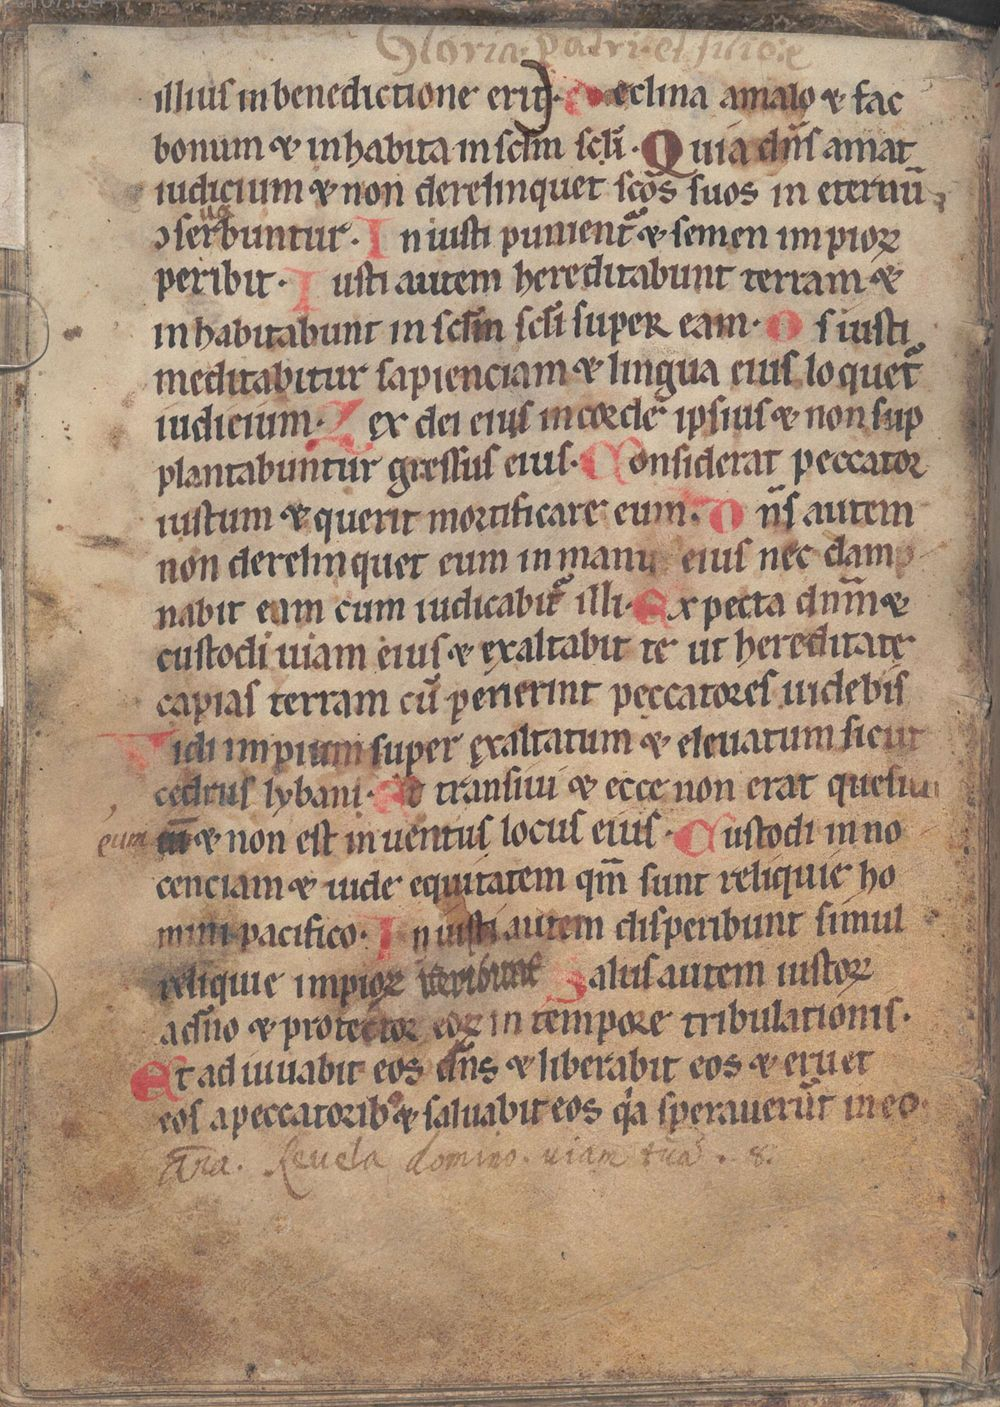 Gloria patri et filio &
illius in benedictione erit. Declina a malo & fac
bonum & inhabita in sclm scli. Quia dns amat
iudicium & non derelinquet scos suos in eternū
ↄseruabuntur. Iniusti punient᷑ & semen impioꝝ
peribit. Iusti autem hereditabunt terram &
inhabitabunt in sclm scli super eam. Os iusti
meditabitur sapienciam & lingua eius loquet᷑
iudicium. Lex dei eius in corde ipsius & non sup
plantabuntur gressus eius. Considerat peccator
iustum & querit mortificare eum. Dn̄s autem
non derelinquet eum in manu eius nec damp
nabit eam cum iudicabit᷑ illi. Expecta dn̄m &
custodi uiam eius & exaltabit te ut hereditate
capias terram cū perierint peccatores uidebis
Vidi impium super exaltatum & eleuatum sicut
cedrus lybani. Et transiui & ecce non erat quesiui
eum & non est inuentus locus eius. Custodi inno
cenciam & uide equitatem qm̄ sunt reliquie ho
mini pacifico. Iniusti autem disperibunt simul
reliquie impioꝝ iteribunt Salus autem iustoꝝ
a dn̄o & protector eoꝝ in tempore tribulationis.
Et adiuuabit eos dn̄s & liberabit eos & eruet
eos a peccatorib & saluabit eos q̇a sperauerūt in eo.
Ana. Reuela domino uiam tuā. 8.